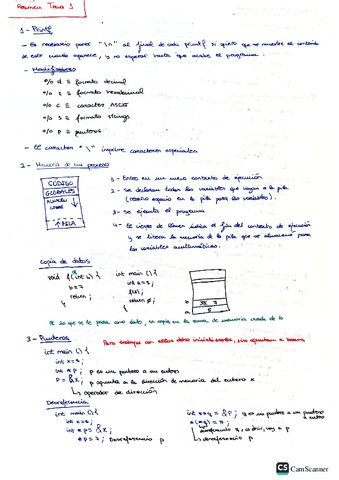 Resumen Tema 1
1 - Printf
- Es necesario poner "\n" al final de cada printf si quiero que se muestre el contenido
de este cuando aparece, y no esperar hasta que acabe el programa.
- Modificadores
% d ≡ formato decimal
% x ≡ formato hexadecimal
% c ≡ caracter ASCII
% s ≡ formato strings
% p ≡ punteros
- El caracter "\" imprime caracteres especiales
2 - Memoria de un proceso
CÓDIGO
GLOBALES
LIBRE
↑ PILA
1 - Entro en un nuevo contexto de ejecución
2 - Se declaran todas las variables que vayan a la pila
(reservo espacio en la pila para las variables).
3 - Se ejecuta el programa
4 - El cierre de llaves indica el fin del contexto de ejecución
y se libera la memoria de la pila que se almacenó para
las variables automáticas.
Copia de datos
void f(int b) {
b = 3
return;
}
int main () {
int a = 5;
f(a);
return 0;
}
b
a
lo que se le pasa como dato, se copia en la zona de memoria creada de b
3 - Punteros
Para trabajar con ellos debo inicializarlos, sino apuntan a basura
int main () {
int x = 5;
int *p; p es un puntero a un entero
p = &x; p apunta a la dirección de memoria del entero x
↳ operador de dirección
Desreferencia
int main () {
int x = 5;
int *p = &x;
*p = 7; Desreferencio p
int **q = &p; q es un puntero a un puntero
a entero
*(*q) = 8;
desreferencio q, es decir, voy a p
↳ desreferencio p
CS CamScanner